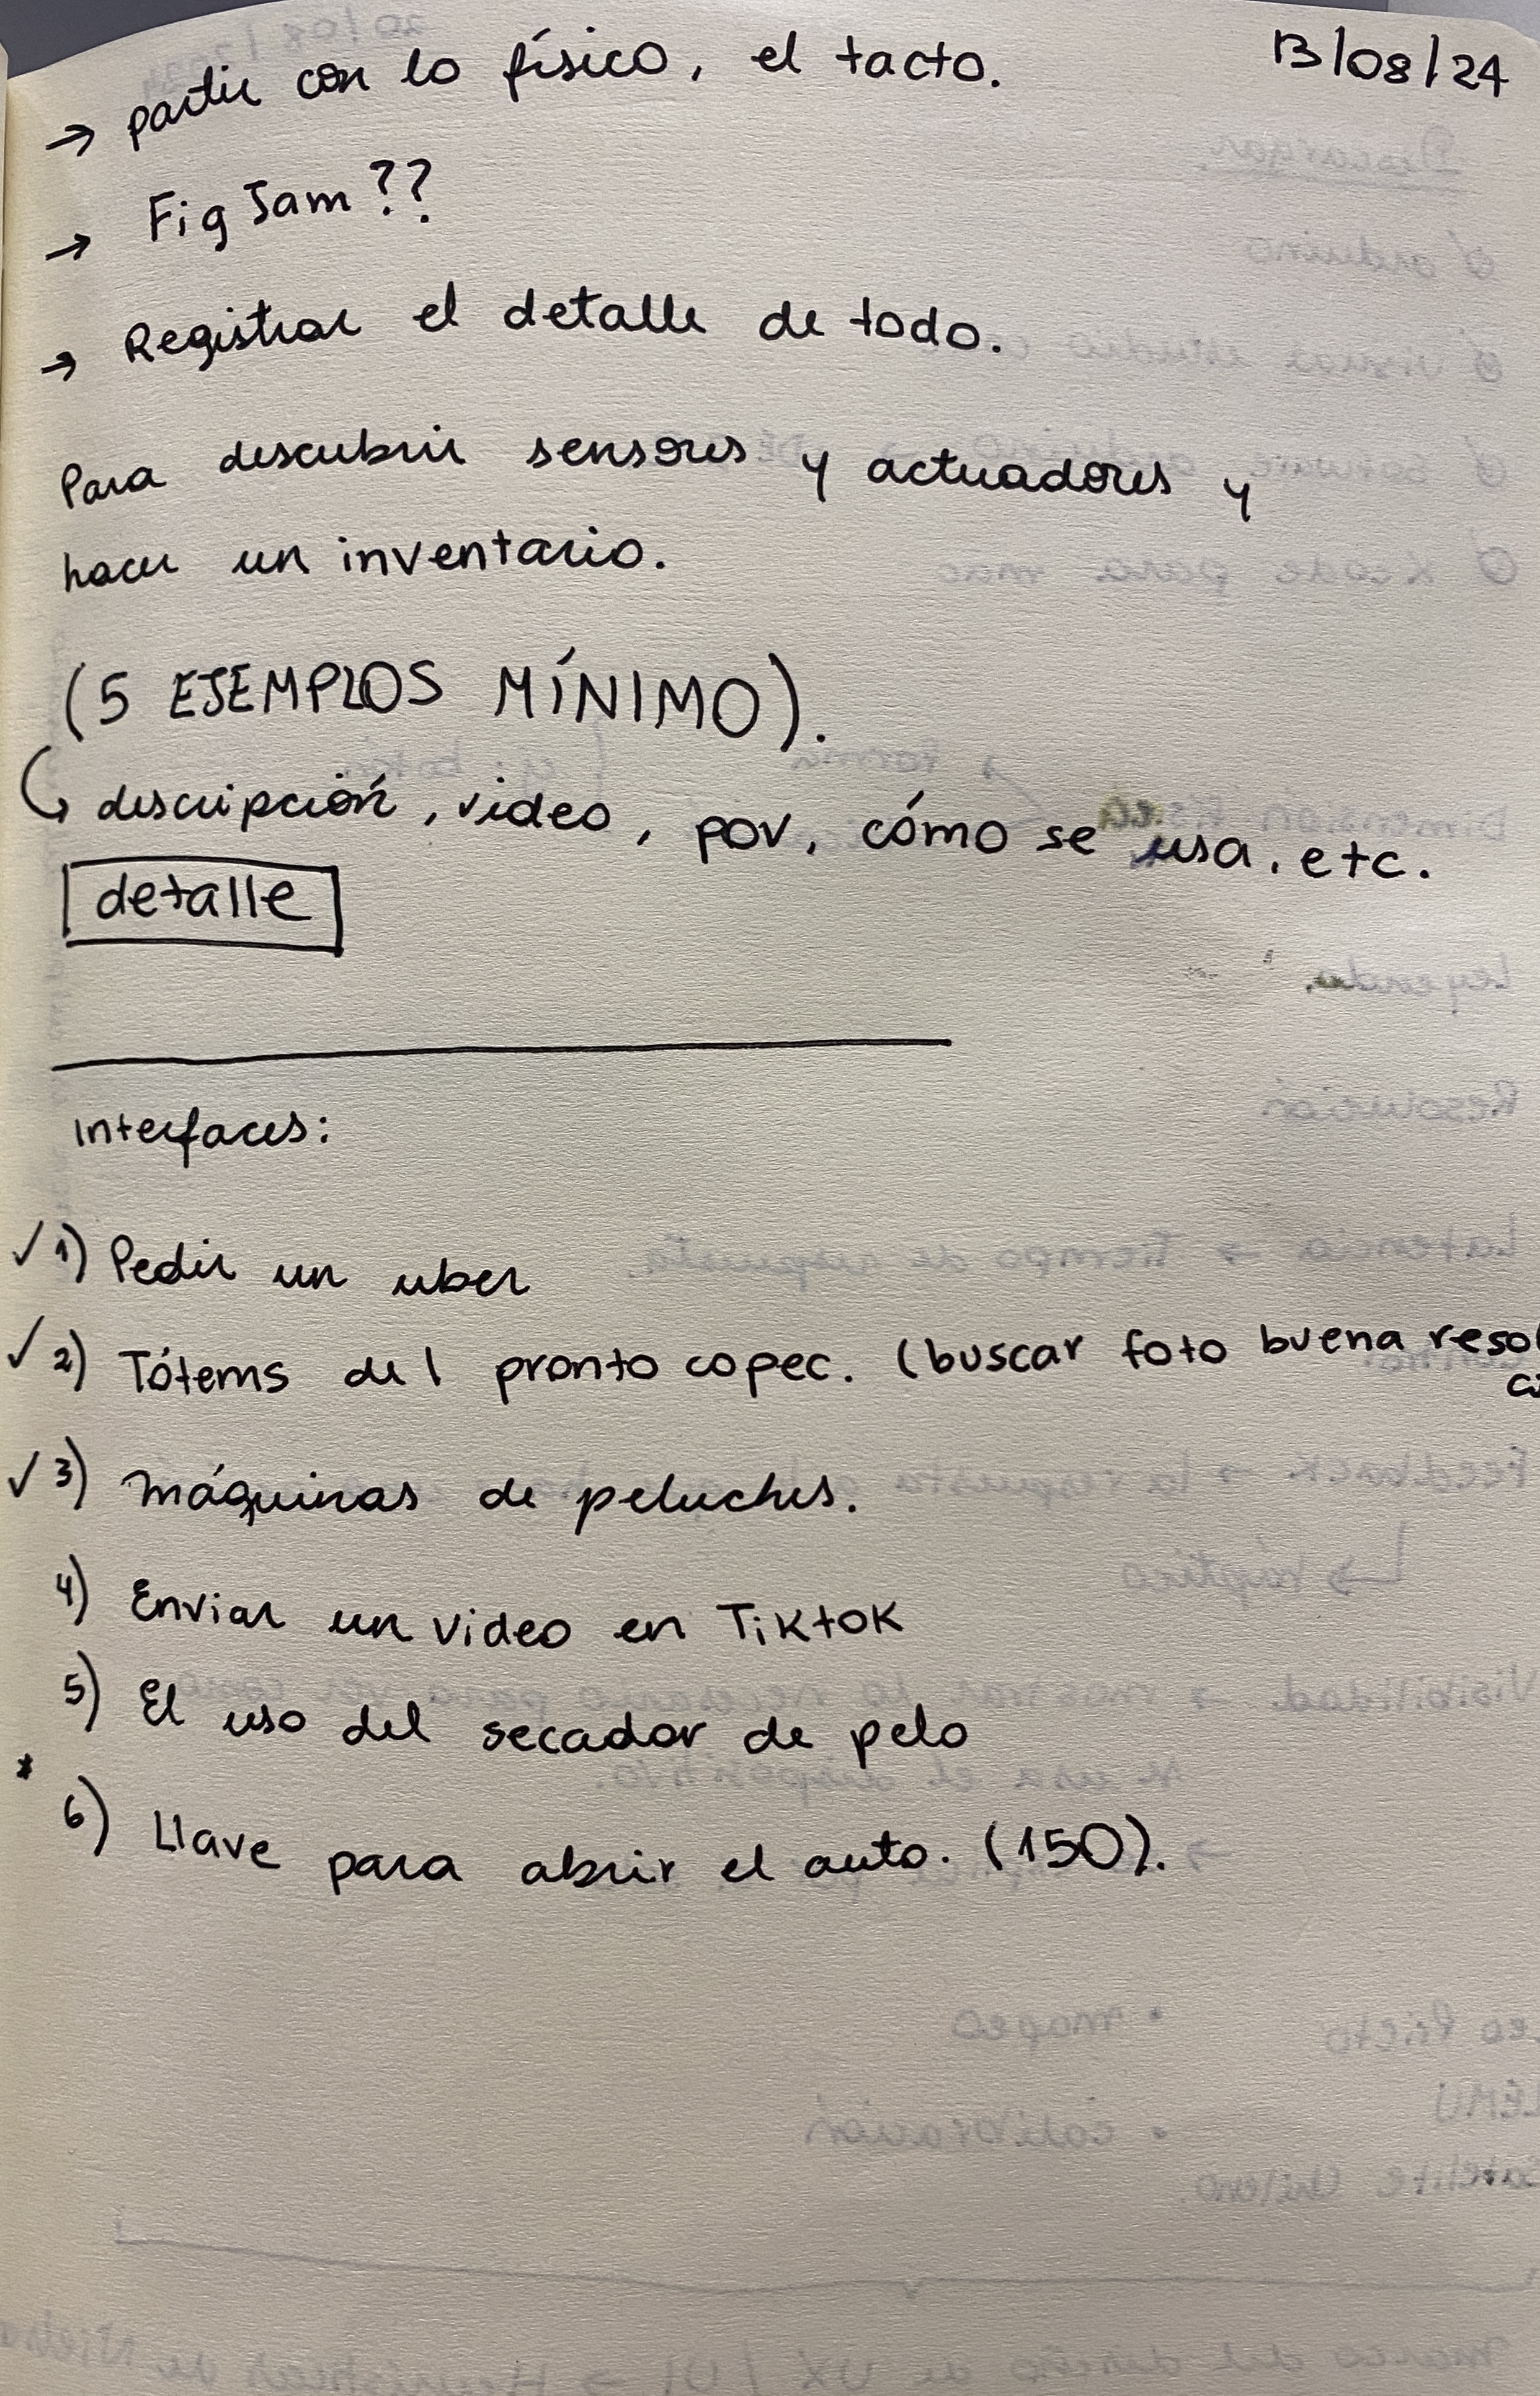 13/08/24
→ partir con lo físico, el tacto.
→ FigJam??
→ Registrar el detalle de todo.
Para descubrir sensores y actuadores y
hacer un inventario.
(5 EJEMPLOS MÍNIMO).
descripción, video, pov, cómo se usa, etc.
detalle
Interfaces:
✓ 1) Pedir un uber
✓ 2) Tótems del pronto copec. (buscar foto buena resol
✓ 3) máquinas de peluches.
4) Enviar un video en TikTok
5) El uso del secador de pelo
* 6) Llave para abrir el auto. (150).